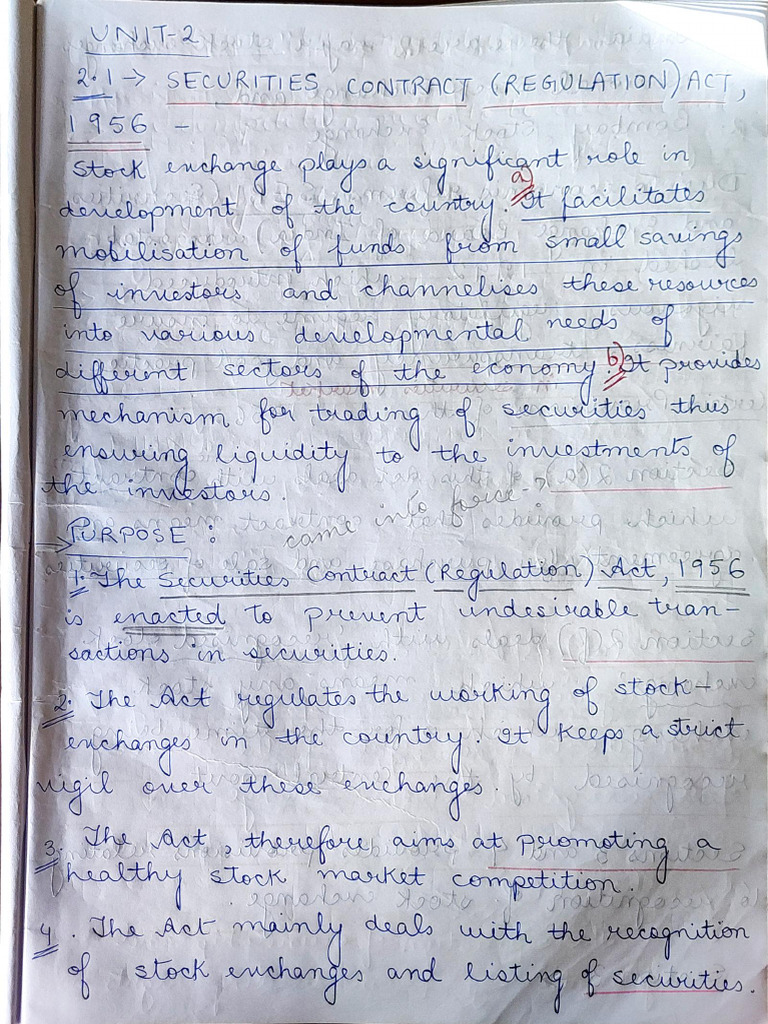 UNIT-2
2.1 → SECURITIES CONTRACT (REGULATION) ACT,
1956 -
Stock exchange plays a significant role in
development of the country. a) It facilitates
mobilisation of funds from small savings
of investors and channelises these resources
into various developmental needs of
different sectors of the economy. b) It provides
mechanism for trading of securities thus
ensuring liquidity to the investments of
the investors.
came into force-?
→ PURPOSE :
1. The Securities Contract (Regulation) Act, 1956
is enacted to prevent undesirable tran-
sactions in securities.
2. The Act regulates the working of stock-
exchanges in the country. It keeps a strict
vigil over these exchanges.
3. The Act, therefore aims at promoting a
healthy stock market competition.
4. The Act mainly deals with the recognition
of stock exchanges and listing of securities.